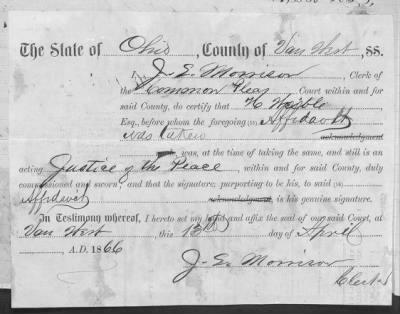 The State of Ohio, County of Van Wert, ss.
I, J. E. Morrison, Clerk of
the Common Pleas Court within and for
said County, do certify that H Weible
Esq., before whom the foregoing (10) Affidavit
was taken acknowledgment
was, at the time of taking the same, and still is an
acting Justice of the Peace, within and for said County, duly
commissioned and sworn; and that the signature, purporting to be his, to said (10)
Affidavit acknowledgment, is his genuine signature.
In Testimony whereof, I hereto set my hand and affix the seal of our said Court, at
Van Wert, this 13th day of April
A.D. 1866
J. E. Morrison
Clerk